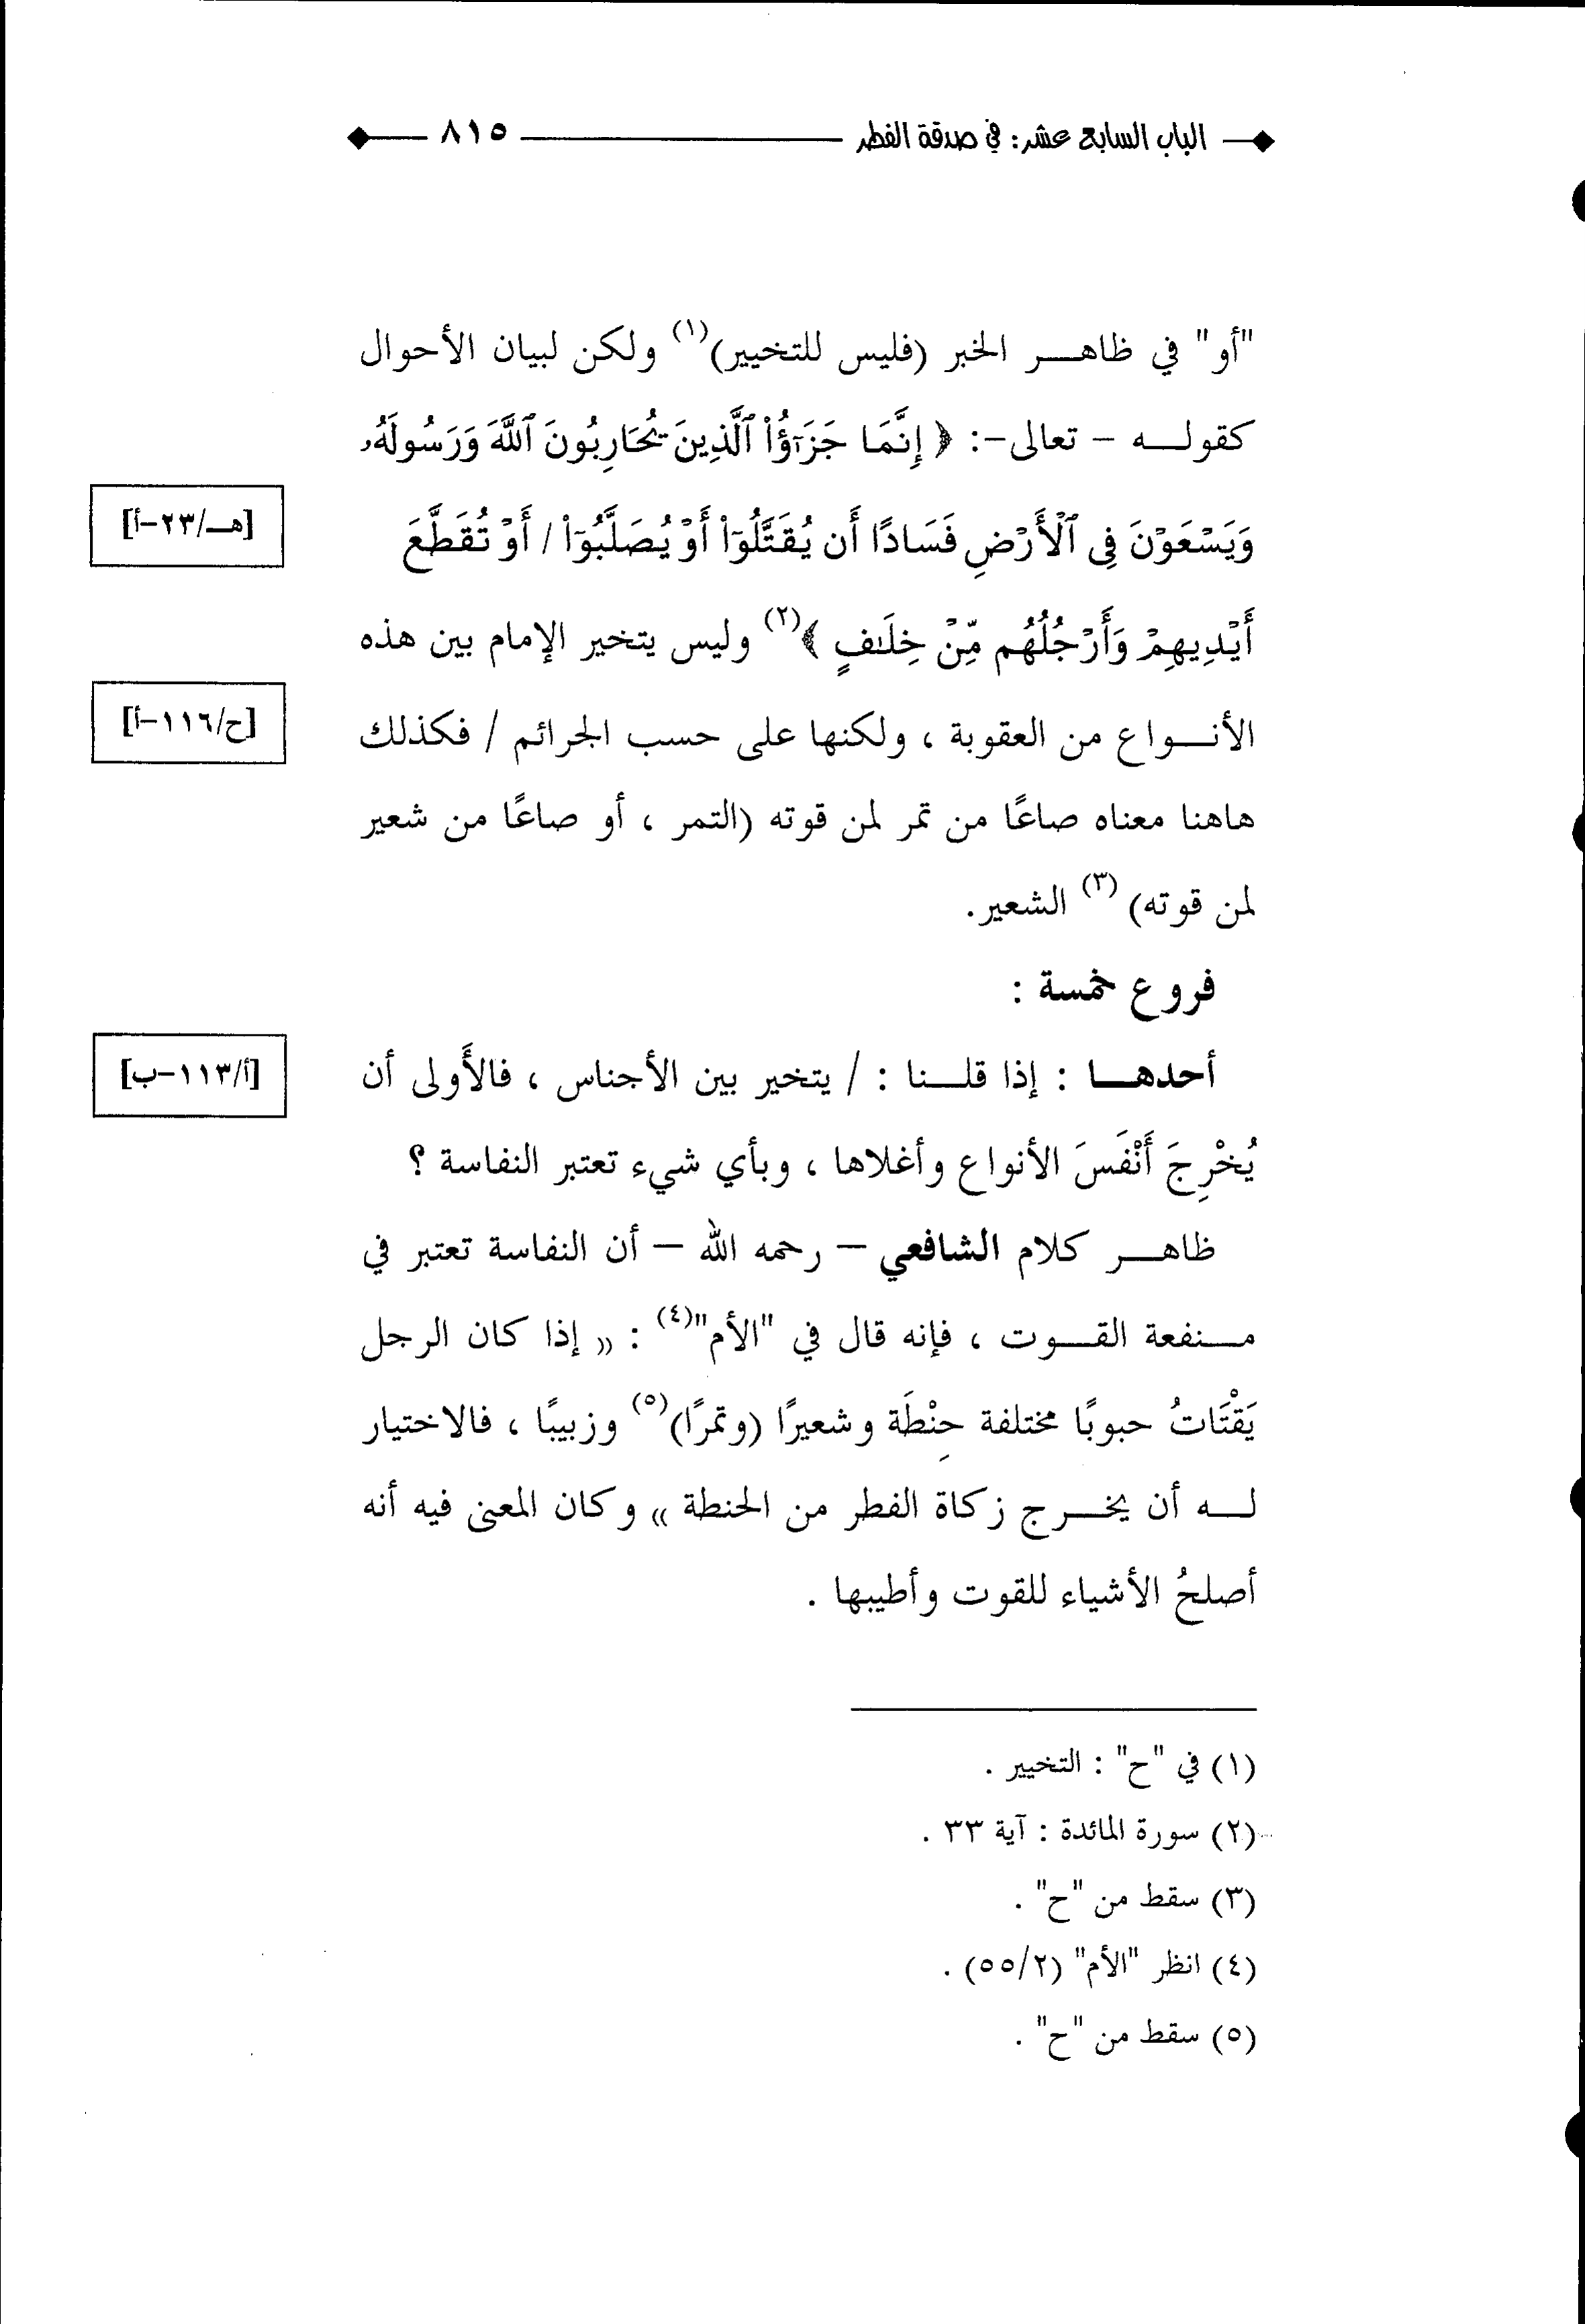 الباب السابع عشر: في صدقة الفطر ٨١٥
"أو" في ظاهـــر الخبر (فليس للتخيير)(١) ولكن لبيان الأحوال
كقولـــه – تعالى–: ﴿ إِنَّمَا جَزَٰٓؤُا۟ ٱلَّذِينَ يُحَارِبُونَ ٱللَّهَ وَرَسُولَهُۥ
وَيَسْعَوْنَ فِى ٱلْأَرْضِ فَسَادًا أَن يُقَتَّلُوٓا۟ أَوْ يُصَلَّبُوٓا۟ / أَوْ تُقَطَّعَ
[هـ/٢٣–أ]
أَيْدِيهِمْ وَأَرْجُلُهُم مِّنْ خِلَـٰفٍ ﴾(٢) وليس يتخير الإمام بين هذه
الأنـــواع من العقوبة ، ولكنها على حسب الجرائم / فكذلك
[ح/١١٦–أ]
هاهنا معناه صاعًا من تمر لمن قوته (التمر ، أو صاعًا من شعير
لمن قوته) (٣) الشعير.
فروع خمسة :
أحدهـــا : إذا قلـــنا : / يتخير بين الأجناس ، فالأَولى أن
[أ/١١٣–ب]
يُخْرِجَ أَنْفَسَ الأنواع وأغلاها ، وبأي شيء تعتبر النفاسة ؟
ظاهـــر كلام الشافعي – رحمه الله – أن النفاسة تعتبر في
مـــنفعة القـــوت ، فإنه قال في "الأم"(٤) : « إذا كان الرجل
يَقْتَاتُ حبوبًا مختلفة حِنْطَة وشعيرًا (وتمرًا)(٥) وزبيبًا ، فالاختيار
لـــه أن يخـــرج زكاة الفطر من الحنطة » وكان المعنى فيه أنه
أصلحُ الأشياء للقوت وأطيبها .
(١) في "ح" : التخيير .
(٢) سورة المائدة : آية ٣٣ .
(٣) سقط من "ح" .
(٤) انظر "الأم" (٥٥/٢) .
(٥) سقط من "ح" .